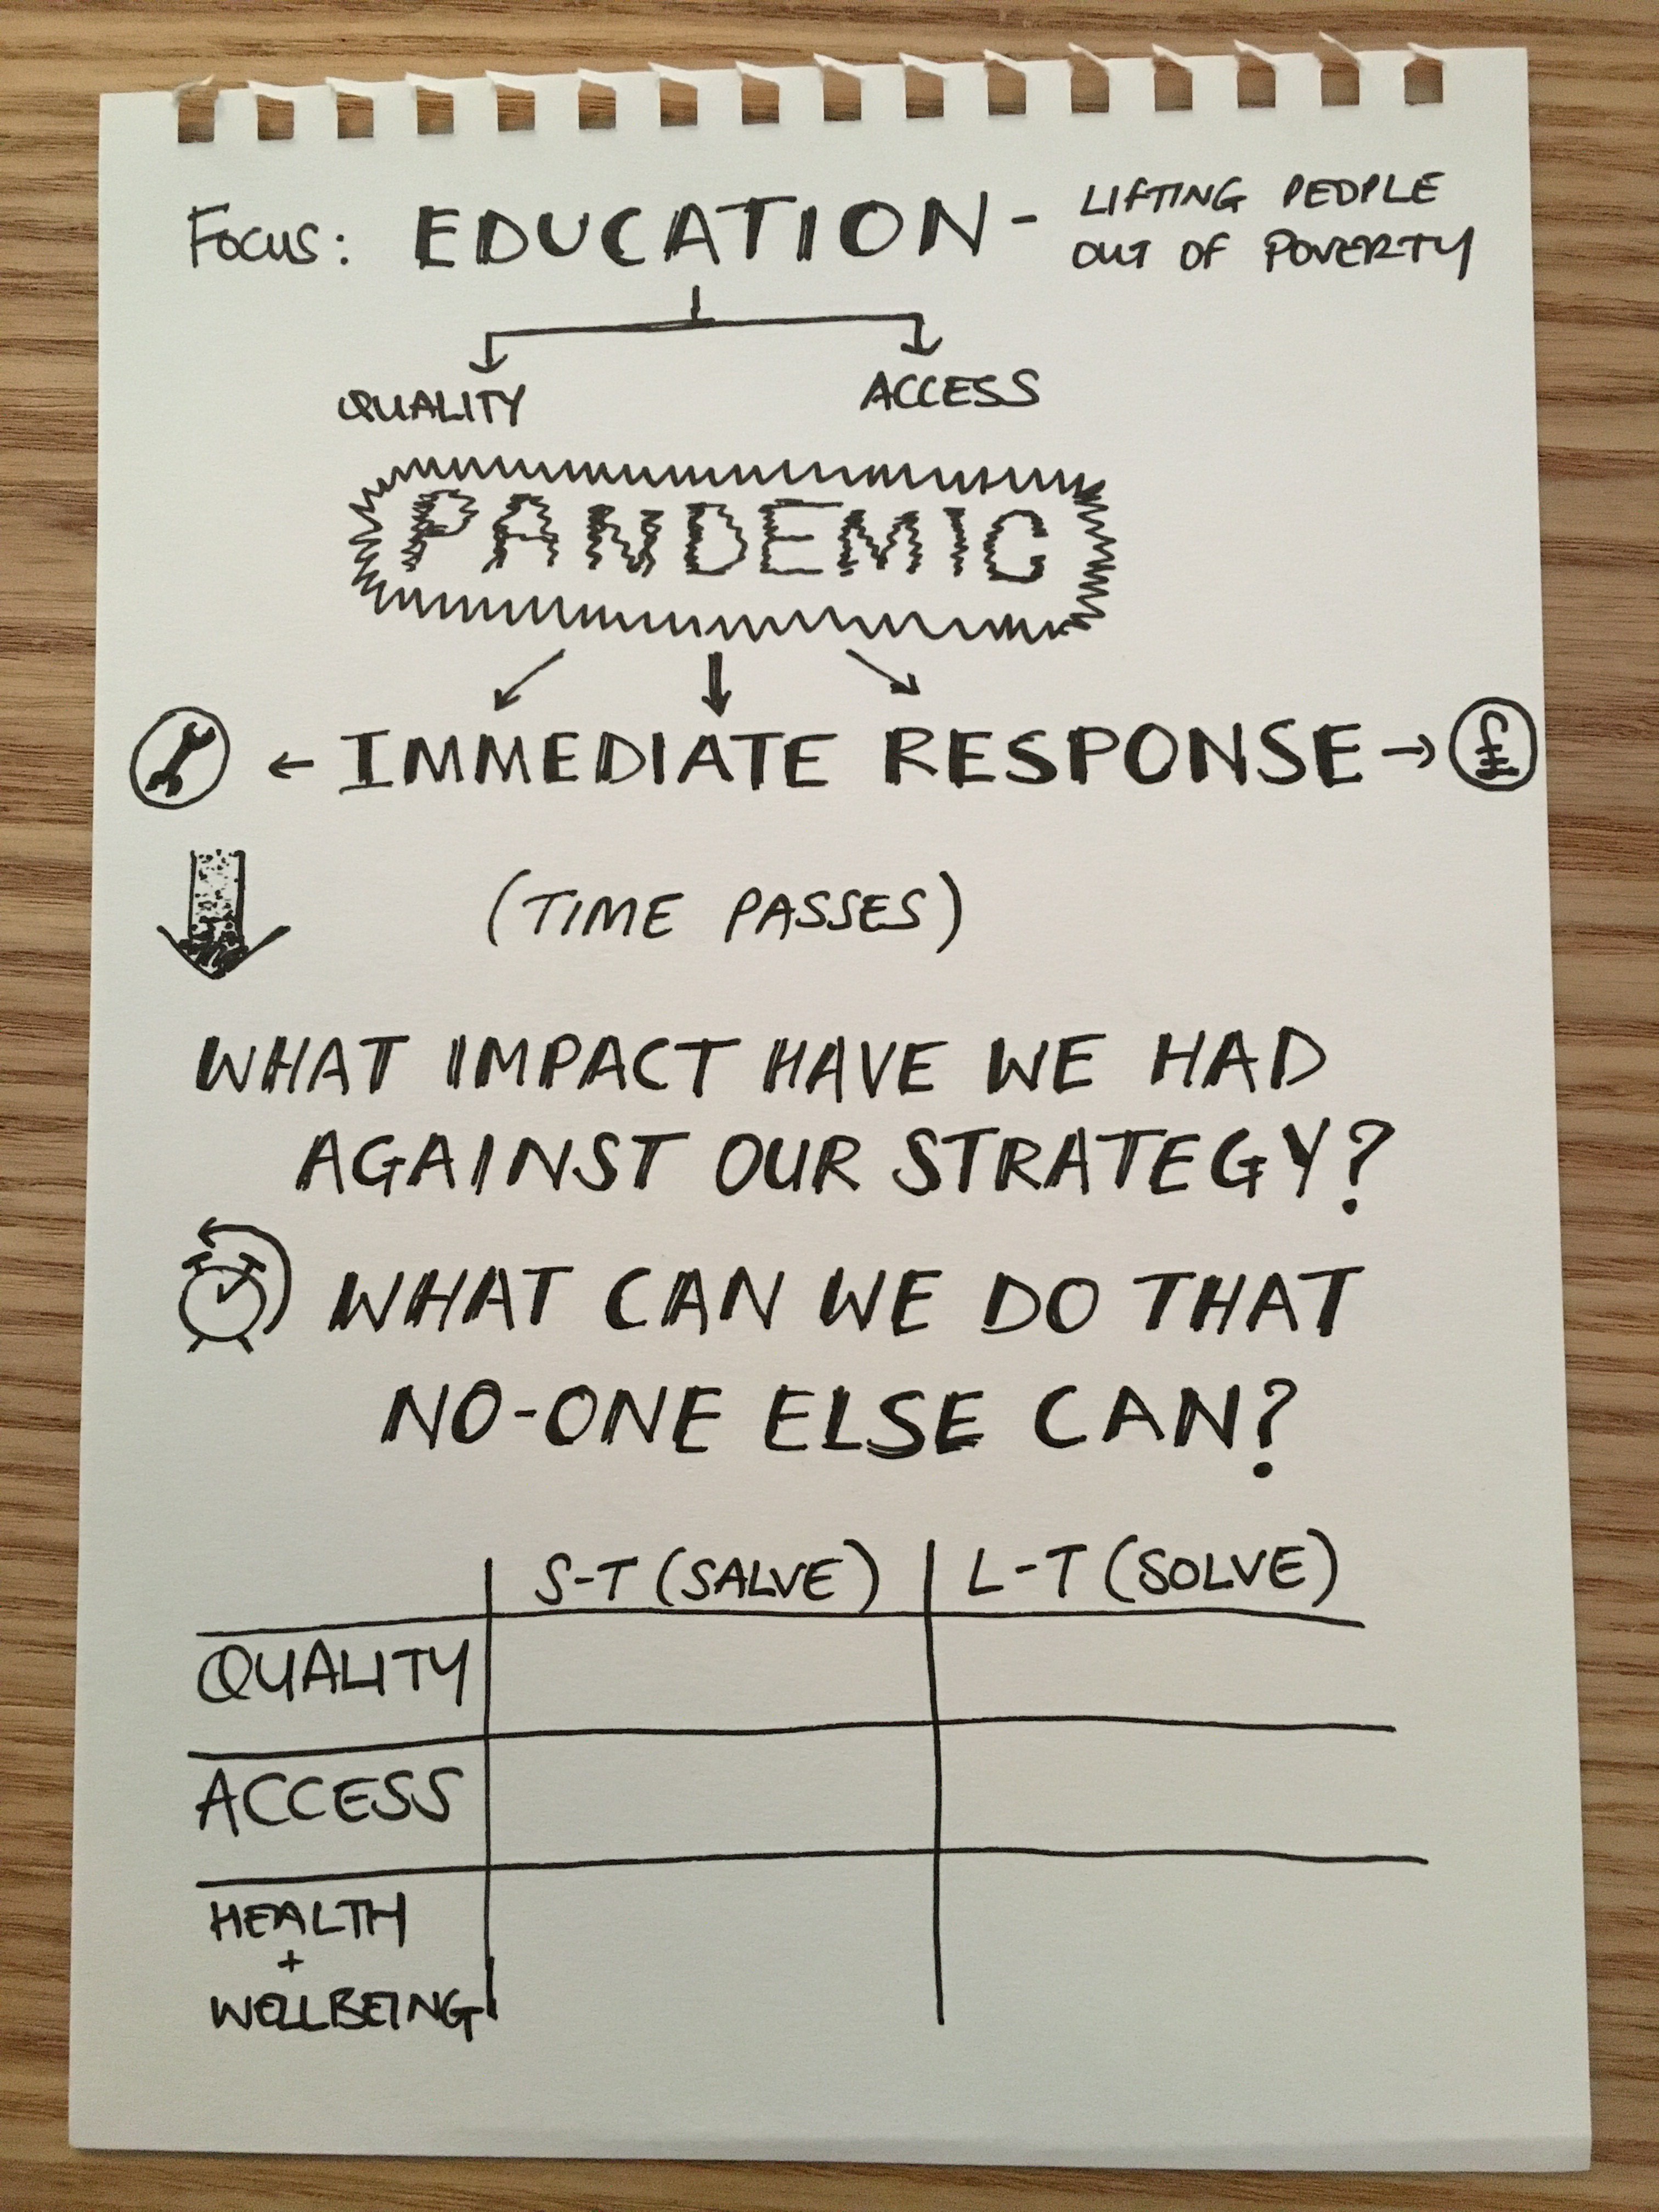 Focus: EDUCATION - LIFTING PEOPLE
OUT OF POVERTY
QUALITY ACCESS
PANDEMIC
← IMMEDIATE RESPONSE → £
(TIME PASSES)
WHAT IMPACT HAVE WE HAD
AGAINST OUR STRATEGY?
WHAT CAN WE DO THAT
NO-ONE ELSE CAN?
S-T (SALVE) L-T (SOLVE)
QUALITY
ACCESS
HEALTH
+
WELLBEING